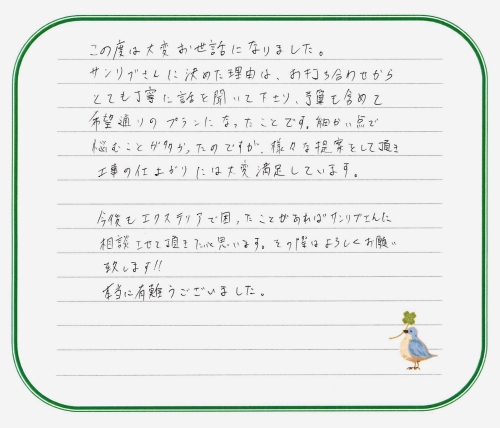 この度は大変お世話になりました。
サンリブさんに決めた理由は、お打ち合わせから
とても丁寧に話を聞いて下さり、予算も含めて
希望通りのプランになったことです。細かい点で
悩むことが多かったのですが、様々な提案をして頂き
工事の仕上がりには大変満足しています。
今後もエクステリアで困ったことがあればサンリブさんに
相談させて頂きたいと思います。その際はよろしくお願い
致します!!
本当に有難うございました。